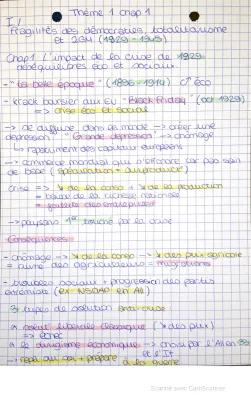 Thème 1 chap 1
I /
Fragilités des démocraties, totalitarisme
et 2GM (1929 - 1945)
Chap 1 L'impact de la crise de 1929
déséquilibres éco et sociaux
- "la belle époque" (1896 - 1914) éco
- krack boursier aux EU "Black Friday" (oct 1929)
=> crise éco et social
-> se diffuse dans le monde -> crée une
dépression "Grande dépression" -> chômage
rapatriement des capitaux européens
-> commerce mondial qui s'effondre car pas sain
de base (spéculation + surproduct°)
crise => ↘ de la conso + ↘ de la production
= baisse de la richesse nationale
= faillite des entreprises
-> paysans 1er touché par la crise
Conséquences
- chômage -> ↘ de la conso -> ↘ des prix agricole
= ruine des agriculteurs = migrations
- troubles sociaux + progression des partis
extrémiste (ex NSDAP en All)
3 types de solution anti-crise
libérale classique (↘ des prix)
=> échec
dirigisme économique -> choisi par l'All en 33
et l'It
-> repli sur soi + prépare à la guerre
Scanné avec CamScanner